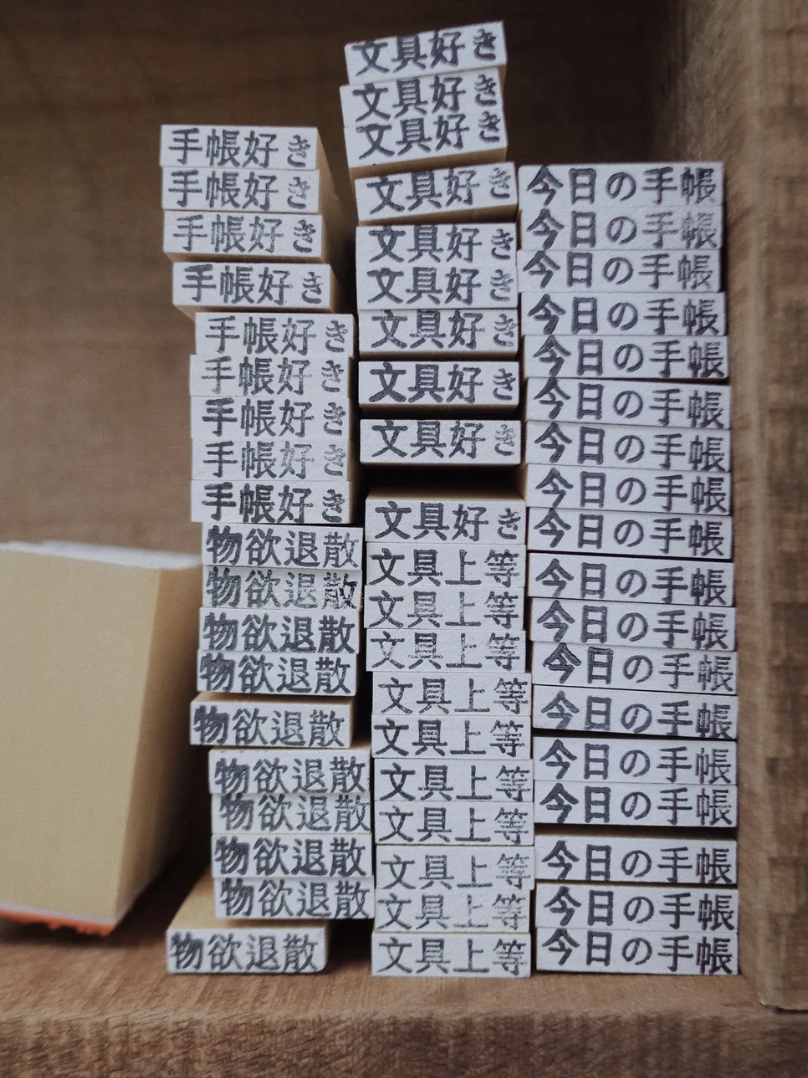 手帳好き
手帳好き
手帳好き
手帳好き
手帳好き
手帳好き
手帳好き
手帳好き
手帳好き
物欲退散
物欲退散
物欲退散
物欲退散
物欲退散
物欲退散
物欲退散
物欲退散
物欲退散
物欲退散
文具好き
文具好き
文具好き
文具好き
文具好き
文具好き
文具好き
文具好き
文具好き
文具好き
文具上等
文具上等
文具上等
文具上等
文具上等
文具上等
文具上等
文具上等
文具上等
文具上等
今日の手帳
今日の手帳
今日の手帳
今日の手帳
今日の手帳
今日の手帳
今日の手帳
今日の手帳
今日の手帳
今日の手帳
今日の手帳
今日の手帳
今日の手帳
今日の手帳
今日の手帳
今日の手帳
今日の手帳
今日の手帳